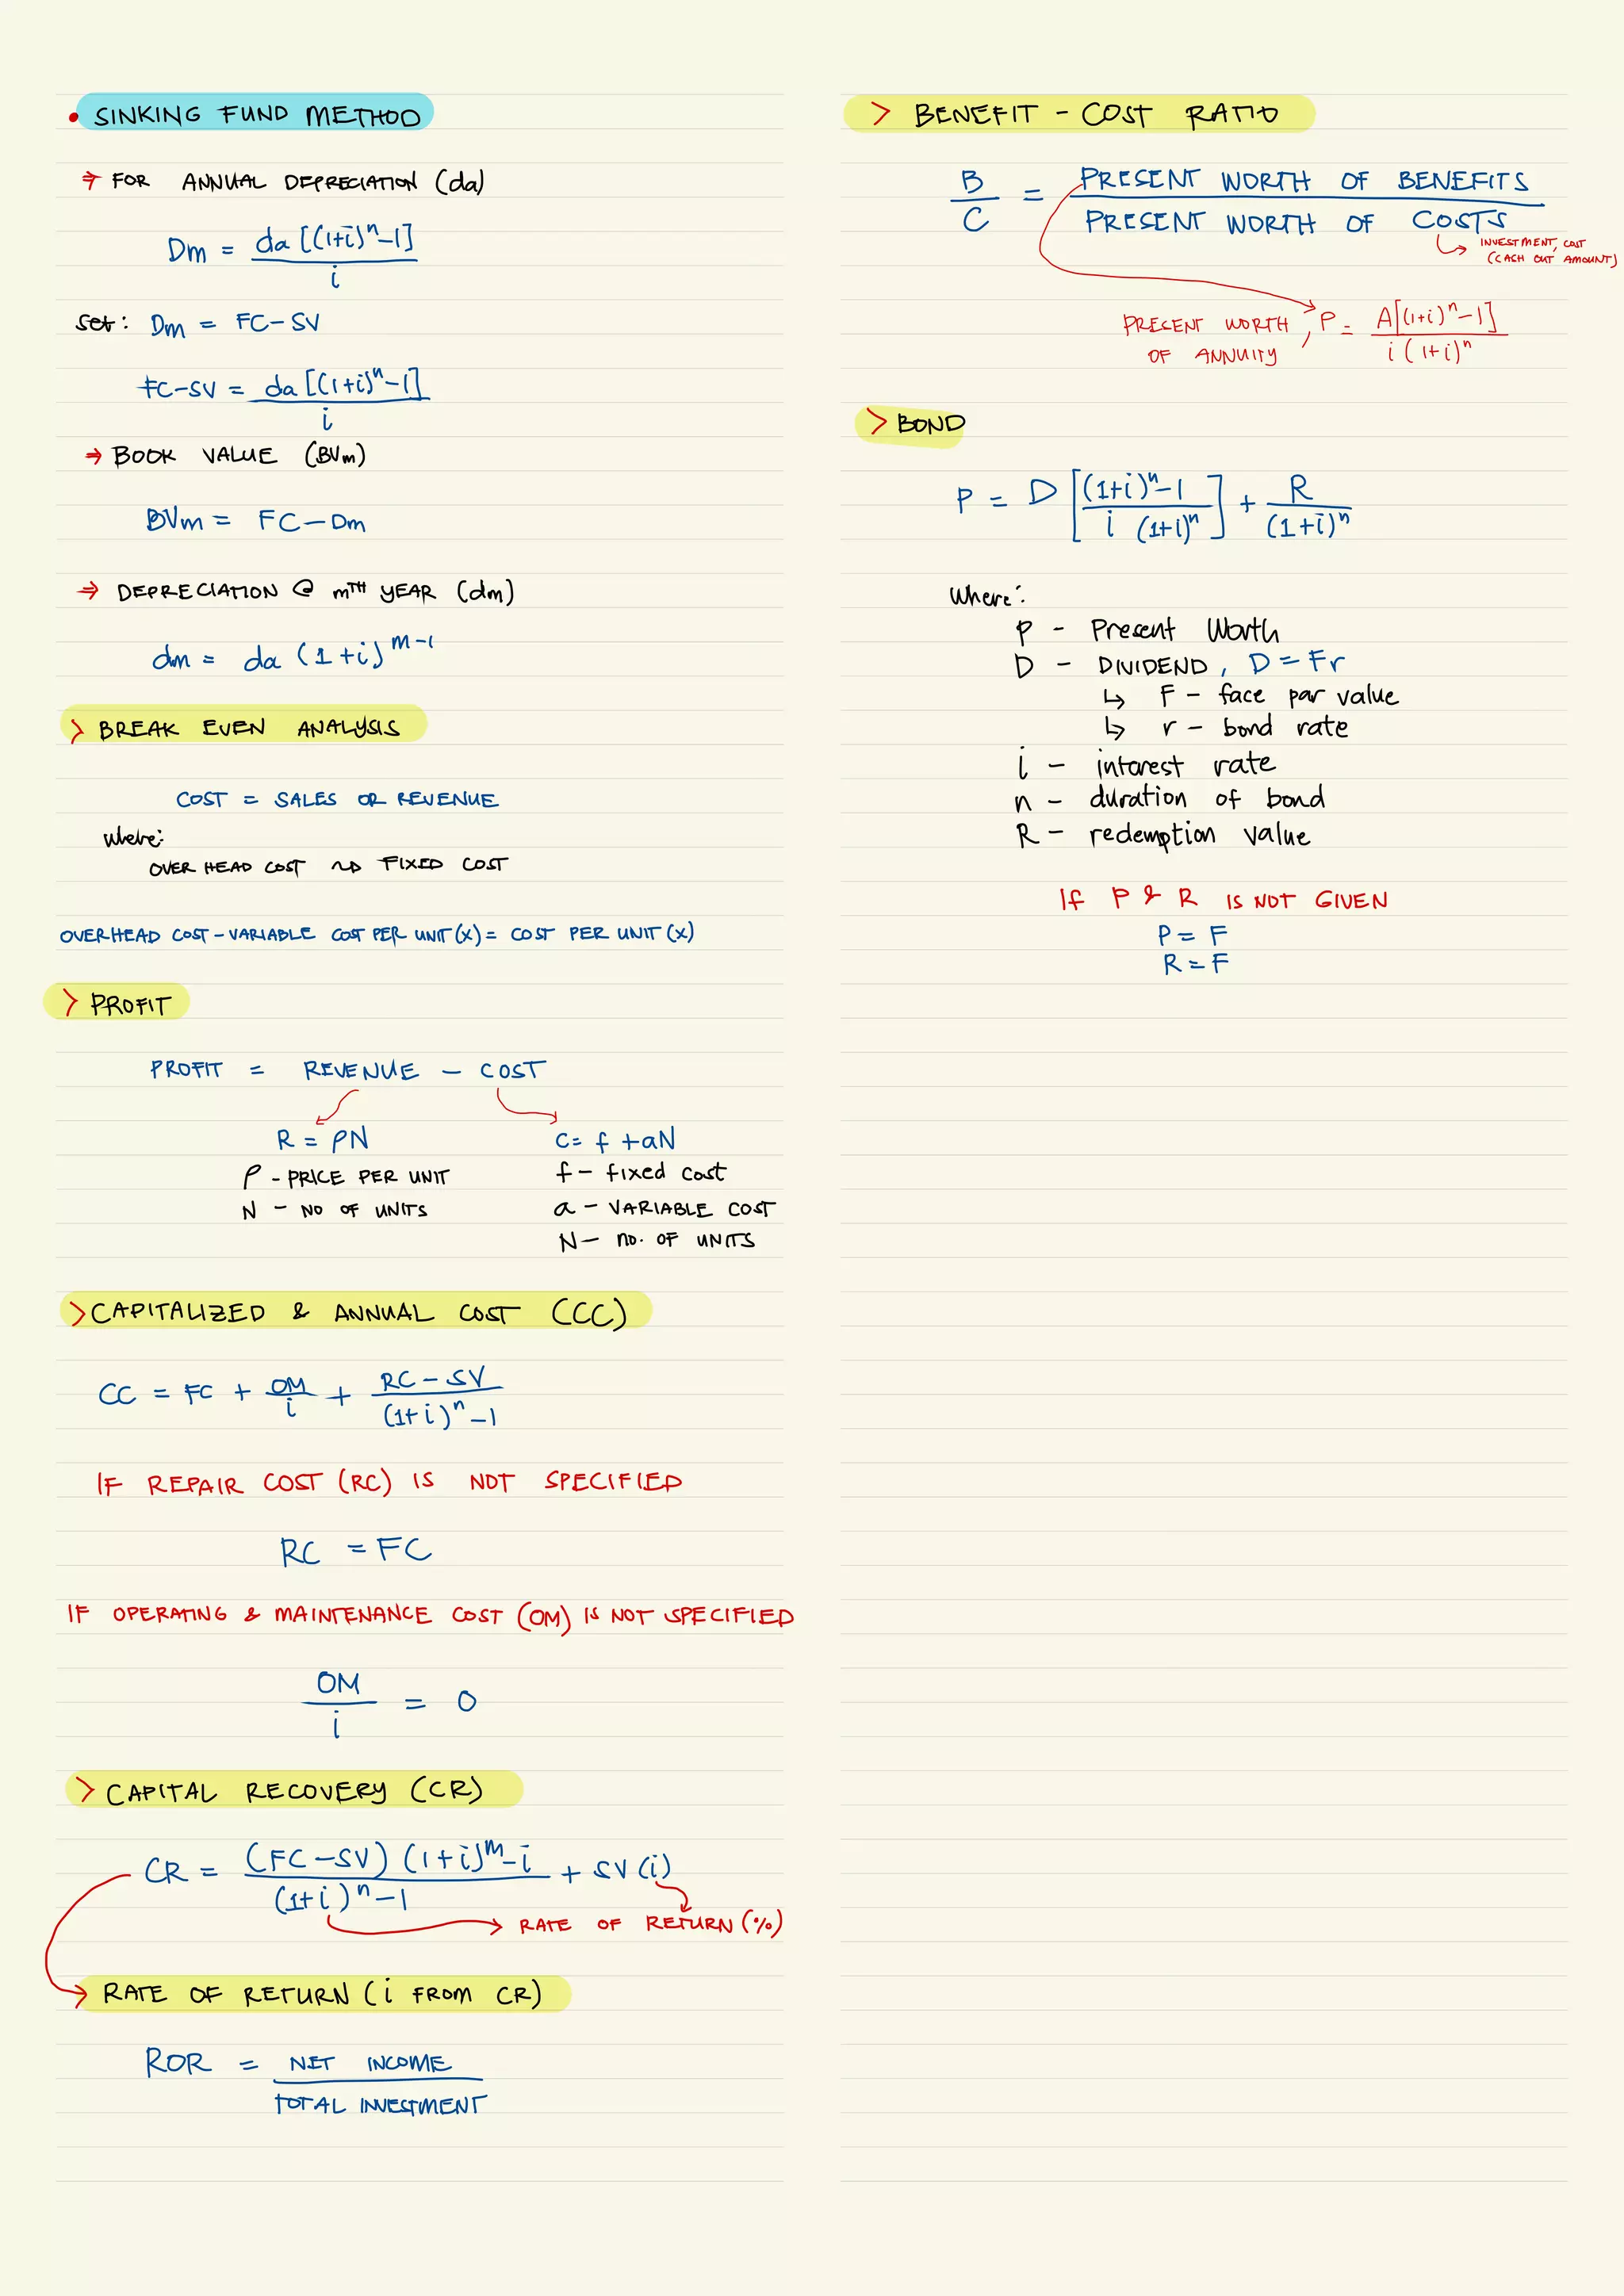 • SINKING FUND METHOD
→ FOR ANNUAL DEPRECIATION (da)
Dm = da [(1+i)^n-1] / i
Set: Dm = FC-SV
FC-SV = da [(1+i)^n-1] / i
→ BOOK VALUE (BVm)
BVm = FC-Dm
→ DEPRECIATION @ mTH YEAR (dm)
dm = da (1+i)^m-1
> BREAK EVEN ANALYSIS
COST = SALES OR REVENUE
where:
OVERHEAD COST ~> FIXED COST
OVERHEAD COST-VARIABLE COST PER UNIT (X) = COST PER UNIT (X)
> PROFIT
PROFIT = REVENUE - COST
R = PN C = f + aN
P - PRICE PER UNIT f - fixed cost
N - NO OF UNITS a - VARIABLE COST
N - no. OF UNITS
> CAPITALIZED & ANNUAL COST (CCC)
CC = FC + OM/i + (RC-SV) / (1+i)^n-1
IF REPAIR COST (RC) IS NOT SPECIFIED
RC = FC
IF OPERATING & MAINTENANCE COST (OM) IS NOT SPECIFIED
OM / i = 0
> CAPITAL RECOVERY (CR)
CR = (FC-SV) (1+i)^m-i / (1+i)^n-1 + SV(i)
→ RATE OF RETURN (%)
→ RATE OF RETURN (i FROM CR)
ROR = NET INCOME / TOTAL INVESTMENT
> BENEFIT - COST RATIO
B / C = PRESENT WORTH OF BENEFITS / PRESENT WORTH OF COSTS
→ INVESTMENT, COST
(CASH OUT AMOUNT)
PRESENT WORTH OF ANNUITY, P = A[(1+i)^n-1] / i(1+i)^n
> BOND
P = D [(1+i)^n-1 / i (1+i)^n] + R / (1+i)^n
Where:
P - Present Worth
D - DIVIDEND, D = Fr
↳ F - face par value
↳ r - bond rate
i - interest rate
n - duration of bond
R - redemption value
If P & R IS NOT GIVEN
P = F
R = F